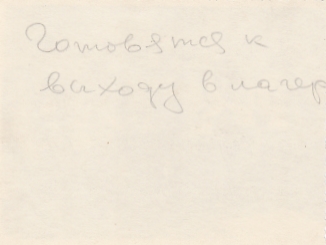 Готовятся к
выходу в лагер